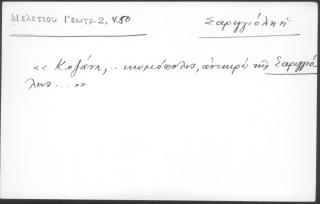 Μελετίου Γεωγρ. 2, 450
Σαριγγιόλη ἡ
« Κοζάνη, .. κωμόπολις, ἀντικρὺ τῆς Σαριγγιό
λης ... »